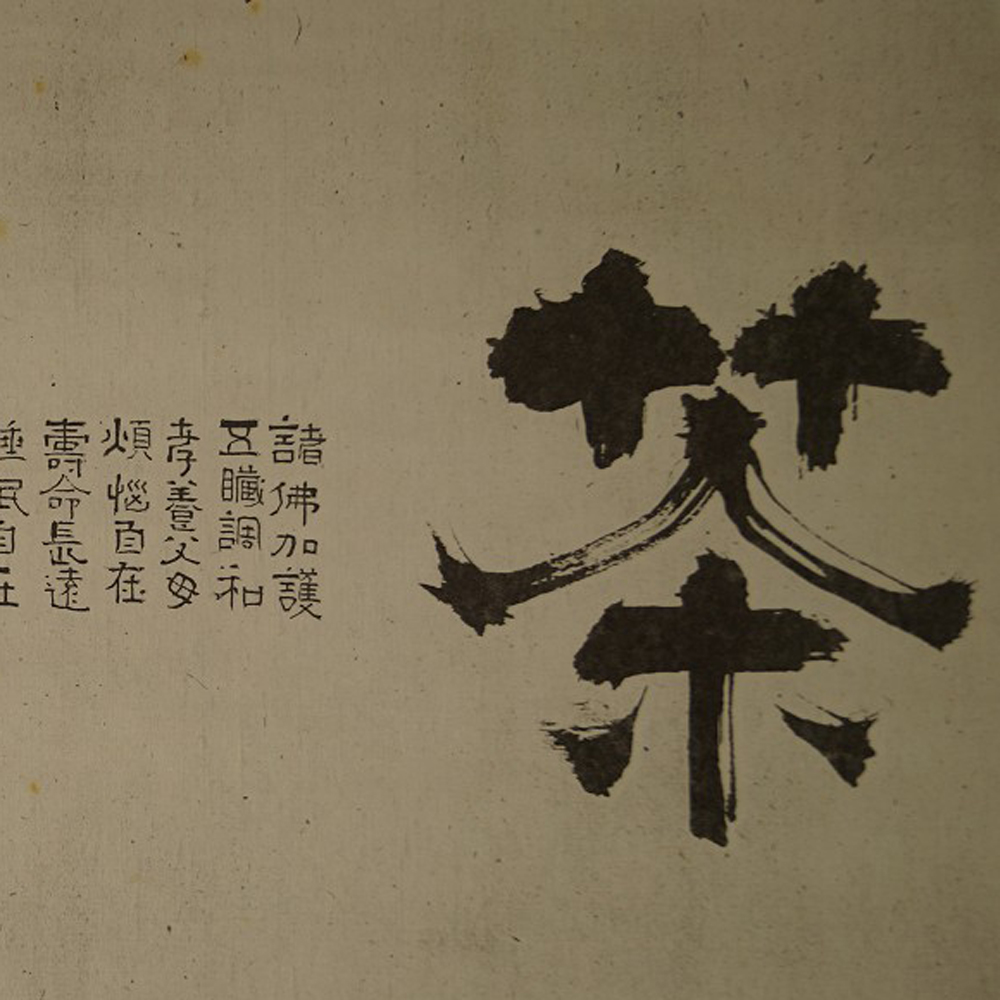 茶
諸佛加護
五臓調和
孝養父母
煩惱自在
壽命長遠
睡眠自在